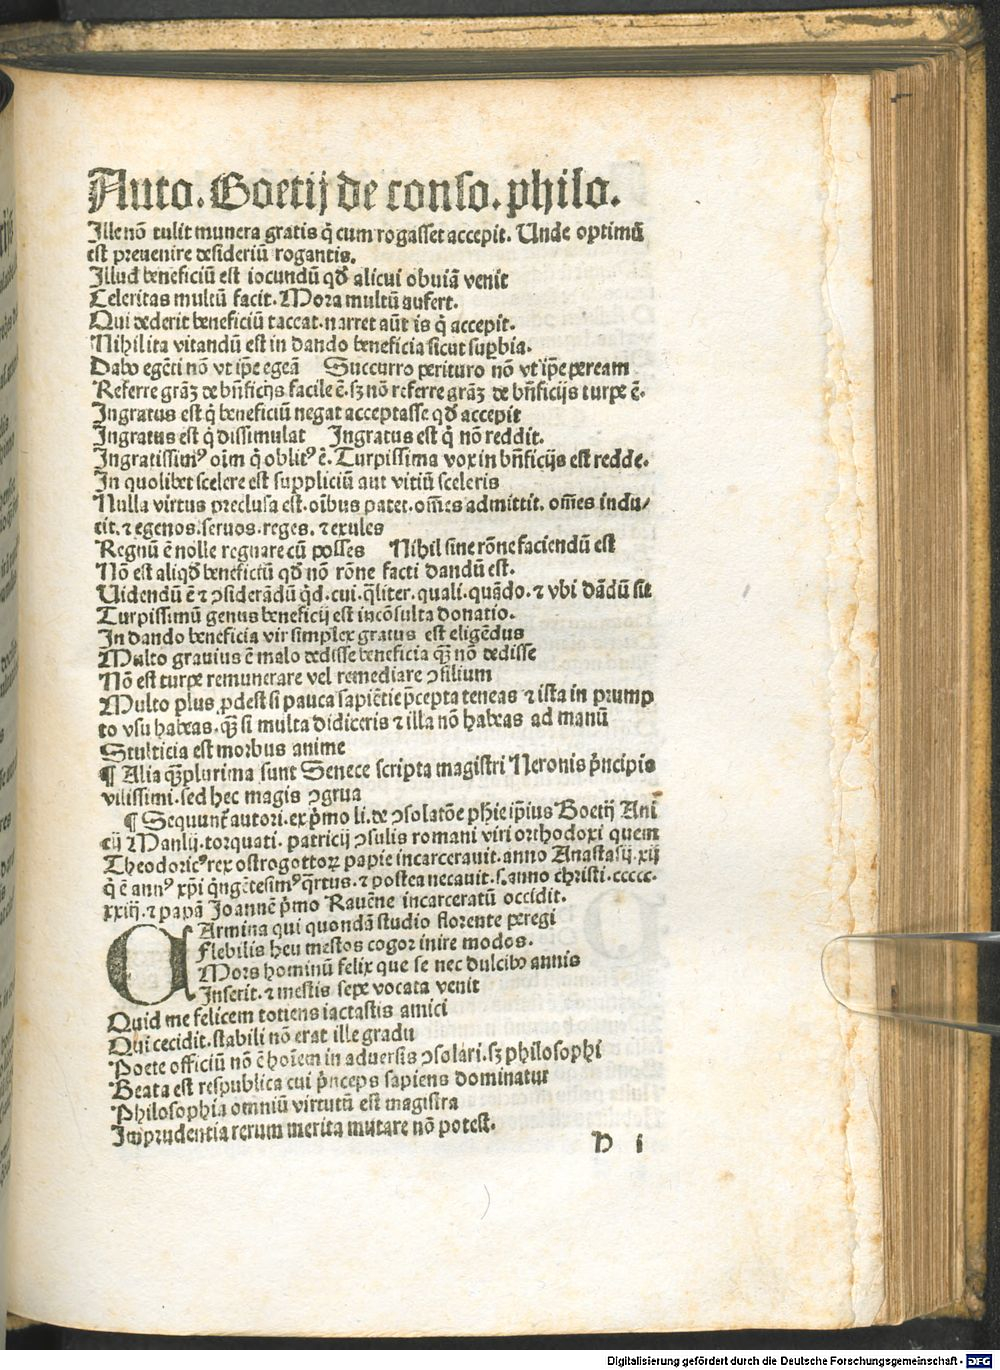 Auto. Boetij de conso. philo.
Ille nō tulit munera gratis q̇ cum rogasset accepit. Unde optimū
est preuenire desideriū rogantis.
Illud beneficiū est iocundū qḋ alicui obuiā venit
Celeritas multū facit. Mora multū aufert.
Qui dederit beneficiū taceat. narret aūt is q̇ accepit.
Nihil ita vitandū est in dando beneficia sicut suꝑbia.
Dabo egēti nō vt ip̄e egeā Succurro perituro nō vt ip̄e peream
Referre grāꝫ de bn̄ficijs facile ē. sꝫ nō referre grāꝫ de bn̄ficijs turpe ē.
Ingratus est q̇ beneficiū negat acceptasse qḋ accepit
Ingratus est q̇ dissimulat Ingratus est q̇ nō reddit.
Ingratissimꝰ oīm q̇ oblitꝰ ē. Turpissima vox in bn̄ficijs est redde.
In quolibet scelere est suppliciū aut vitiū sceleris
Nulla virtus preclusa est. oībus patet. om̄es admittit. om̄es indu/
cit. ⁊ egenos. seruos. reges. ⁊ exules
Regnū ē nolle regnare cū posses Nihil sine rōne faciendū est
Nō est aliqḋ beneficiū qḋ nō rōne facti dandū est.
Uidendū ē ⁊ ꝯsiderādū q̇d. cui. q̄liter. quali. quādo. ⁊ vbi dādū sit
Turpissimū genus beneficij est incōsulta donatio.
In dando beneficia vir simplex gratus est eligēdus
Multo grauius ē malo dedisse beneficia q̄ꝫ nō dedisse
Nō est turpe remunerare vel remediare ꝯsilium
Multo plus ꝓdest si pauca sapiētie p̄cepta teneas ⁊ ista in prump
to vsu habeas. q̄ꝫ si multa didiceris ⁊ illa nō habeas ad manū
Stulticia est morbus anime
¶ Alia q̄ꝫplurima sunt Senece scripta magistri Neronis p̄ncipis
vilissimi. sed hec magis ꝯgrua
¶ Sequunt̄ autori. ex p̄mo li. de ꝯsolatōe phie ip̄ius Boetij Ani
cij Manlij. torquati. patricij ꝯsulis romani viri orthodoxi quem
Theodoricꝰ rex ostrogottoꝝ papie incarcerauit. anno Anastasij. xij
q̇ ē annꝰ xp̄i q̇ngētesimꝰ q̄rtus. ⁊ postea necauit. s. anno christi. ccccc.
xxiij. ⁊ papā Joannē p̄mo Rauēne incarceratū occidit.
CArmina qui quondā studio florente peregi
Flebilis heu mestos cogor inire modos.
Mors hominū felix que se nec dulcibꝰ annis
Inserit. ⁊ mestis sepe vocata venit
Quid me felicem totiens iactastis amici
Qui cecidit. stabili nō erat ille gradu
Poete officiū nō ē hoīem in aduersis ꝯsolari. sꝫ philosophi
Beata est respublica cui p̄nceps sapiens dominatur
Philosophia omniū virtutū est magistra
Imprudentia rerum merita mutare nō potest.
D i
Digitalisierung gefördert durch die Deutsche Forschungsgemeinschaft - DFG